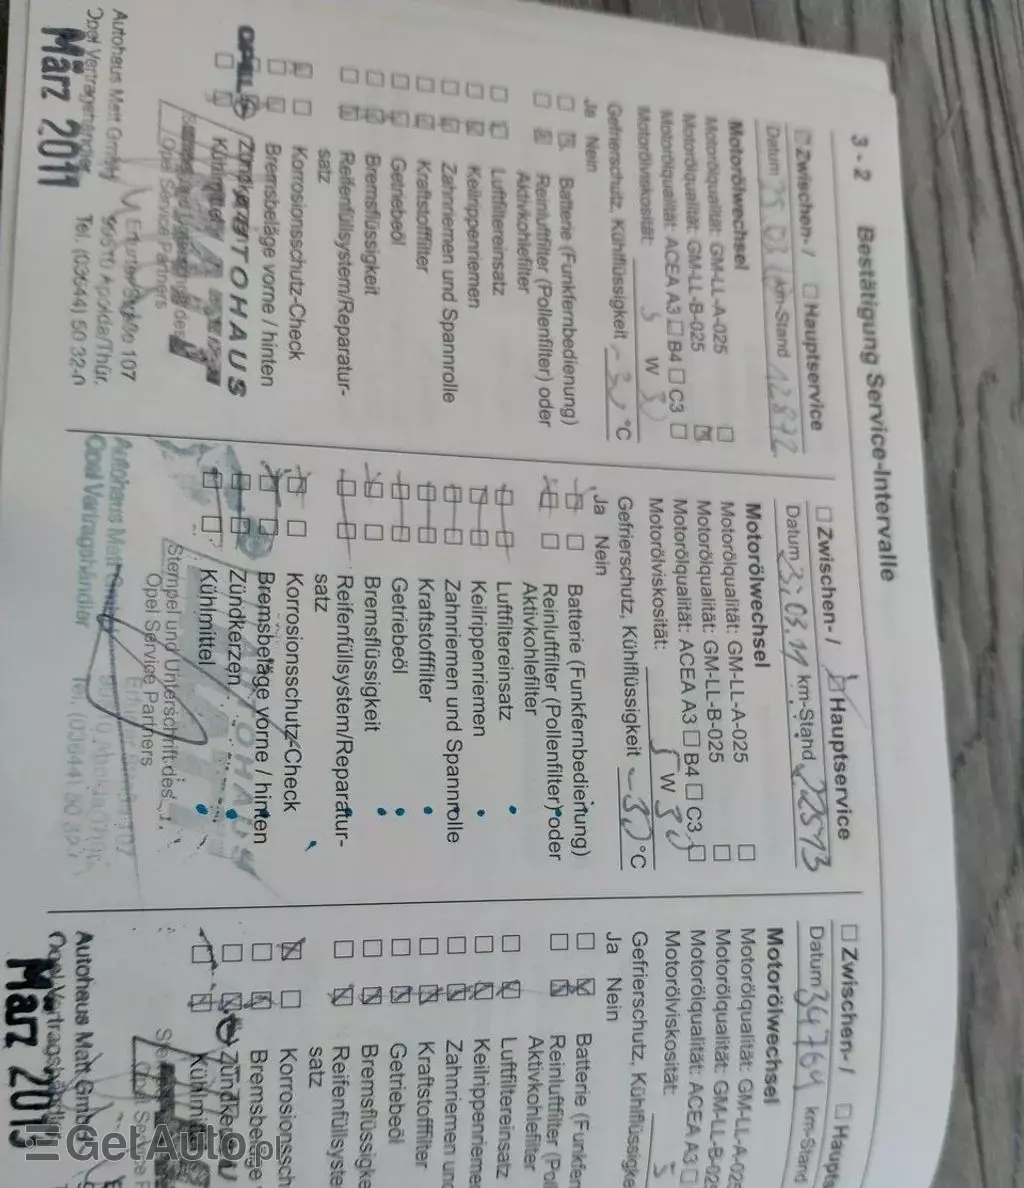 3 - 2 Bestätigung Service-Intervalle
Zwischen- / Hauptservice
Datum 25.03 km-Stand 12872
Motorölwechsel
Motorölqualität: GM-LL-A-025
Motorölqualität: GM-LL-B-025
Motorölqualität: ACEA A3 B4 C3
Motorölviskosität: 5 W 30
Gefrierschutz, Kühlflüssigkeit - 30 °C
Ja Nein
Batterie (Funkfernbedienung)
Reinluftfilter (Pollenfilter) oder
Aktivkohlefilter
Luftfiltereinsatz
Keilrippenriemen
Zahnriemen und Spannrolle
Kraftstofffilter
Getriebeöl
Bremsflüssigkeit
Reifenfüllsystem/Reparatur-
satz
Korrosionsschutz-Check
Bremsbeläge vorne / hinten
OPEL AUTOHAUS
Kühlmittel
Opel Service Partners
Autohaus Matt GmbH Erfurter Straße 107
Opel Vertragshändler 99510 Apolda/Thür.
März 2011 Tel. (03644) 50 32-0
Zwischen- / Hauptservice
Datum 23.03.11 km-Stand 22513
Motorölwechsel
Motorölqualität: GM-LL-A-025
Motorölqualität: GM-LL-B-025
Motorölqualität: ACEA A3 B4 C3
Motorölviskosität: 5 W 30
Gefrierschutz, Kühlflüssigkeit -30 °C
Ja Nein
Batterie (Funkfernbedienung)
Reinluftfilter (Pollenfilter) oder
Aktivkohlefilter
Luftfiltereinsatz
Keilrippenriemen
Zahnriemen und Spannrolle
Kraftstofffilter
Getriebeöl
Bremsflüssigkeit
Reifenfüllsystem/Reparatur-
satz
Korrosionsschutz-Check
Bremsbeläge vorne / hinten
Zündkerzen
Kühlmittel
AUTOHAUS
Stempel und Unterschrift des
Opel Service Partners
Autohaus Matt GmbH
Opel Vertragshändler Tel. (03644) 50
Zwischen- / Haupts
Datum 34769 km-Stand
Motorölwechsel
Motorölqualität: GM-LL-A-025
Motorölqualität: GM-LL-B-025
Motorölqualität: ACEA A3
Motorölviskosität: 5
Gefrierschutz, Kühlflüssigke
Ja Nein
Batterie (Funkfer
Reinluftfilter (Pol
Aktivkohlefilter
Luftfiltereinsatz
Keilrippenrieme
Zahnriemen und
Kraftstofffilter
Getriebeöl
Bremsflüssigke
Reifenfüllsyste
satz
Korrosionssch
Bremsbeläge
Zündke
Kühlmitte
Autohaus Matt GmbH
Opel Vertragshändler
März 201
GetAuto.pl